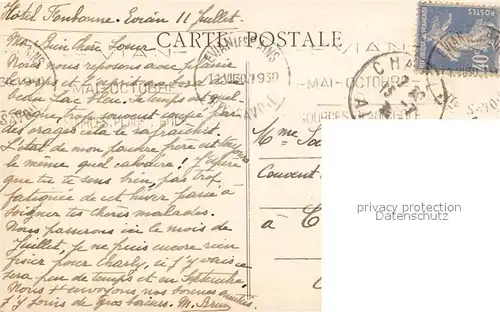 Hôtel Fonbonne. Evian 11 Juillet.
Ma bien chère Soeur
Nous nous reposons avec plaisir
corps et l'esprit au bord du
beau Lac bleu. Le temps est
trop souvent coupé par
des orages cela le rafraichit.
L'état de mon pauvre frère est toujours
le même quel calvaire! J'espère
que tu te sens bien pas trop
fatiguée de cet hiver passé à
soigner tes chères malades.
Nous passerons ici le mois de
Juillet, je ne puis encore rien
fixer pour Charly, si j'y vais ce
sera peu de temps et en Septembre.
Nous t'envoyons nos bonnes amitiés
j'y joins de gros baisers. M.
CARTE POSTALE
POSTES
40c
EVIAN LES BAINS
1930
MAI-OCTOBRE
MAI-OCTOBRE
Mme
Couvent
à
privacy protection
Datenschutz